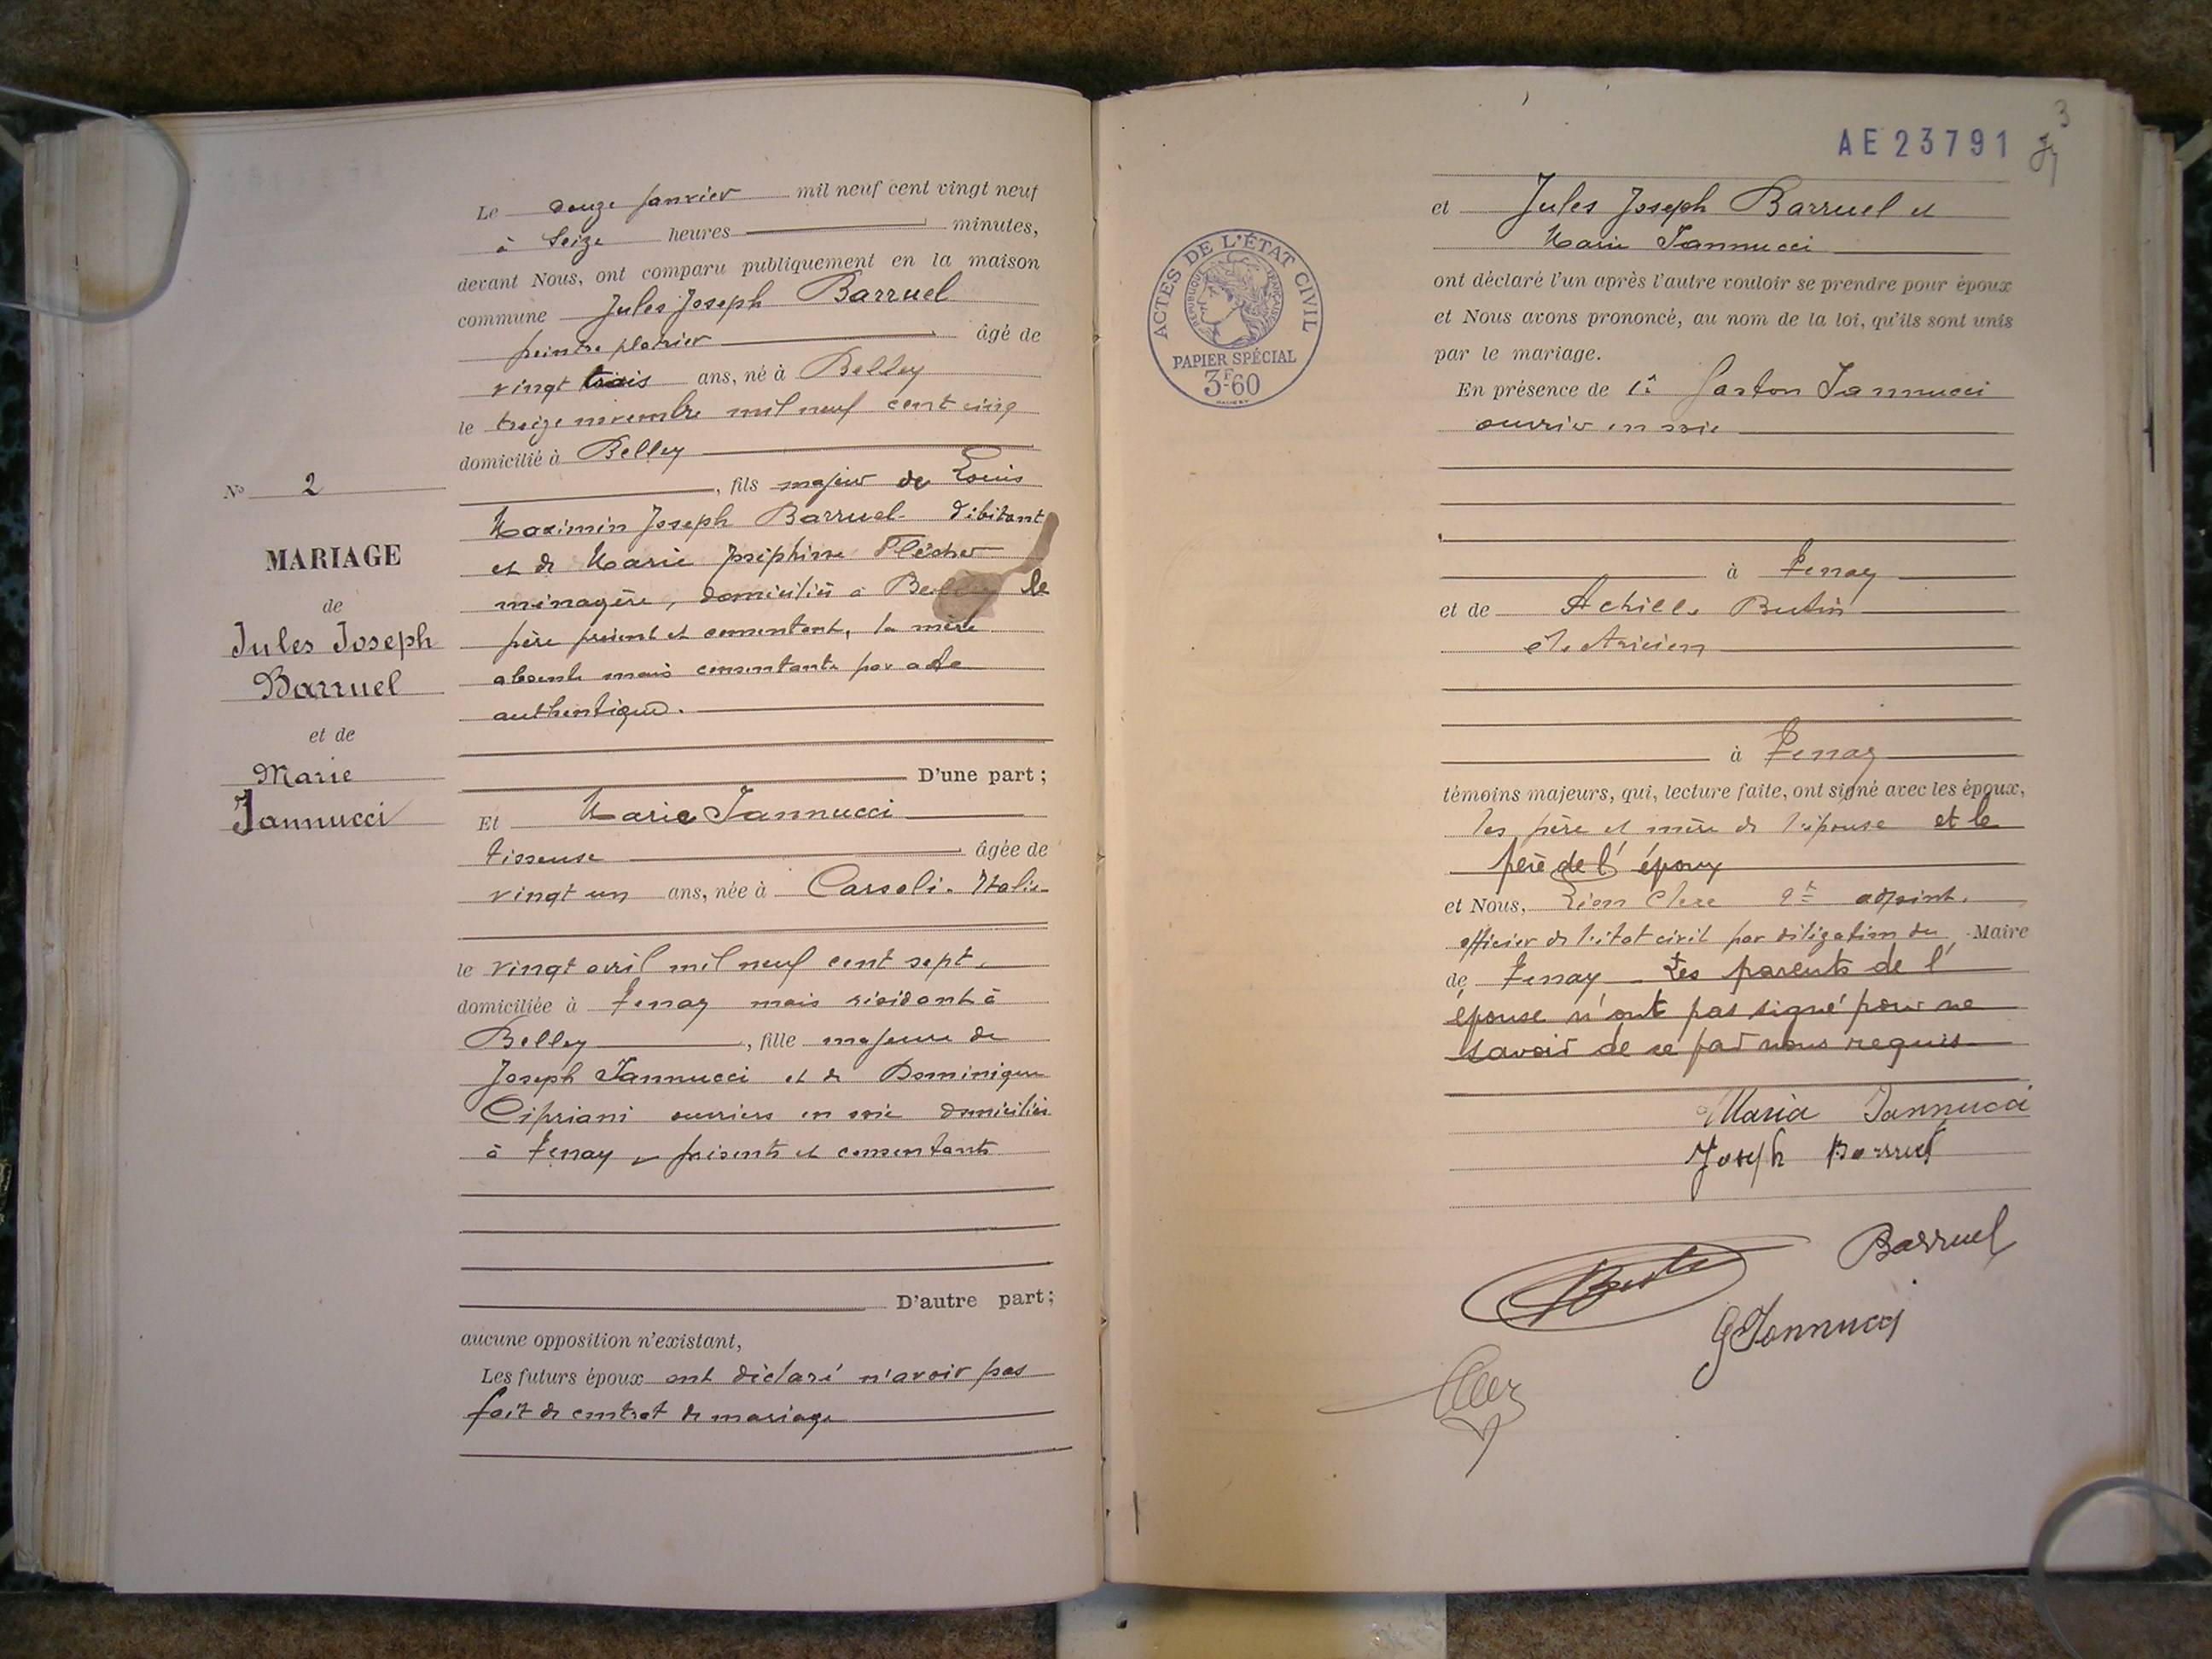 Le douze janvier mil neuf cent vingt neuf
à seize heures minutes,
devant Nous, ont comparu publiquement en la maison
commune Jules Joseph Barruel
peintre platrier âgé de
vingt trois ans, né à Belley
le treize novembre mil neuf cent cinq
domicilié à Belley
, fils majeur de Louis
Maximin Joseph Barruel débitant
et de Marie Joséphine
ménagère, domiciliés à Belley le
père présent et consentant, la mère
absente mais consentante par acte
authentique.
D'une part;
Et Marie Iannucci
tisseuse âgée de
vingt un ans, née à Carsoli. Italie
le vingt avril mil neuf cent sept.
domiciliée à Tenay mais résidant à
Belley, fille majeure de
Joseph Iannucci et de Dominique
Cipriani ouvriers en soie domiciliés
à Tenay présents et consentants
D'autre part;
aucune opposition n'existant,
Les futurs époux ont déclaré n'avoir pas
fait de contrat de mariage
No 2
MARIAGE
de
Jules Joseph
Barruel
et de
Marie
Iannucci
3
AE23791
et Jules Joseph Barruel et
Marie Iannucci
ont déclaré l'un après l'autre vouloir se prendre pour époux
et Nous avons prononcé, au nom de la loi, qu'ils sont unis
par le mariage.
En présence de Gaston Iannucci
ouvrier en soie
à Tenay
et de Achille Butin
électricien
à Tenay
témoins majeurs, qui, lecture faite, ont signé avec les époux,
les père et mère de l'épouse et le
père de l'époux
et Nous, Léon Clerc 2e adjoint,
officier de l'état civil par délégation du Maire
de Tenay Les parents de l'
épouse n'ont pas signé pour ne
savoir de ce par nous requis
Maria Iannucci
Joseph Barruel
Barruel
G Iannucci
ACTES DE L'ÉTAT CIVIL
RÉPUBLIQUE FRANÇAISE
PAPIER SPÉCIAL
3F60